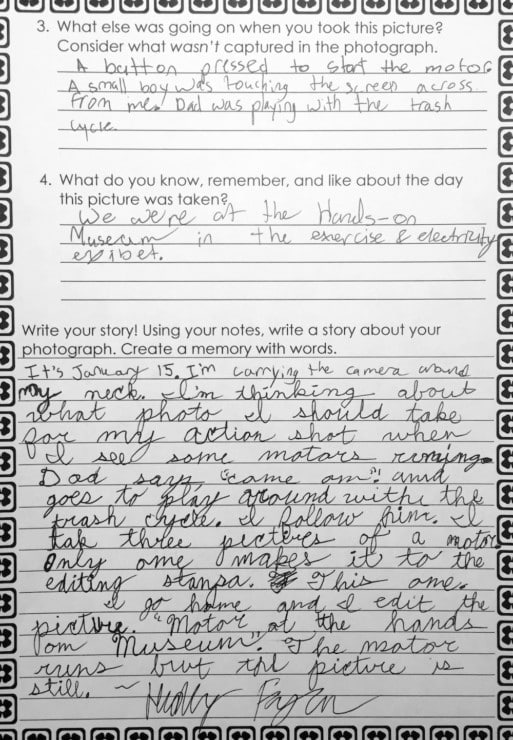 3. What else was going on when you took this picture?
Consider what wasn't captured in the photograph.
A button pressed to start the motor.
A small boy was touching the screen across
from me. Dad was playing with the trash
cycle.
4. What do you know, remember, and like about the day
this picture was taken?
We were at the Hands-on
Museum in the exercise & electricity
exibet.
Write your story! Using your notes, write a story about your
photograph. Create a memory with words.
It's January 15. I'm carrying the camera around
my neck. I'm thinking about
what photo I should take
for my action shot when
I see some motors runing.
Dad says, "came om"! annd
goes to play around withe the
trash cycle. I follow him. I
tak three pectures of a motor
Only ome makes it to the
editing stanpa. This one.
I go home and I edit the
picture. "Motor at the hands
om Museum". The motor
runs but the picture is
still. ~